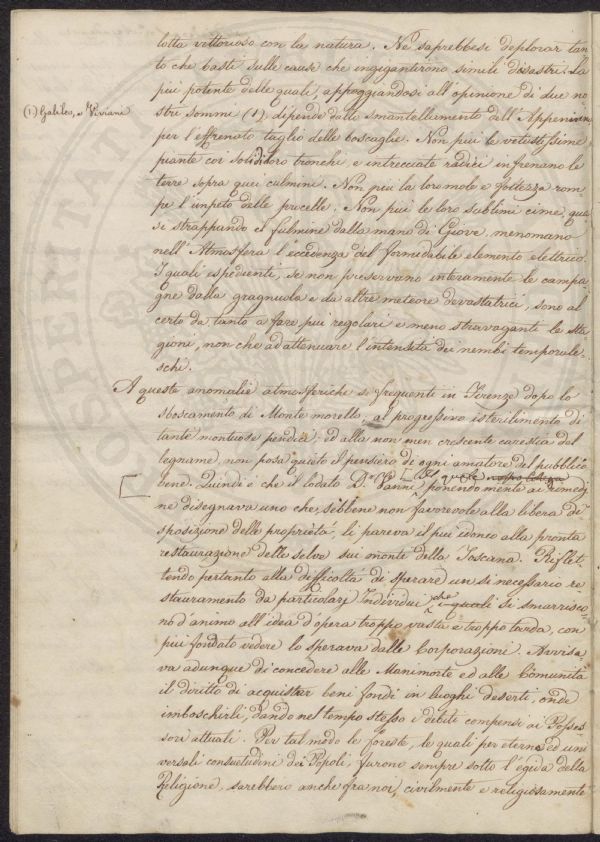 lotta vittorioso con la natura. Ne saprebbesi deplorar tan
to che basti sulle cause che ingigantirono simili disastri. La
più potente delle quali, appoggiandosi all'opinione di due no
(1) Galileo, e Viviani
stri sommi (1) dipende dallo smantellamento dell'Appennino
per l'effrenato taglio delle boscaglie. Non più le vetustissime
piante coi solidi loro tronchi e intrecciate radici infrenano le
terre sopra quei culmini. Non più la loro mole e foltezza rom
pe l'impeto delle procelle. Non più le loro sublimi cime, qua
si strappando il fulmine dalla mano di Giove, menomano
nell'Atmosfera l'eccedenza del formidabile elemento elettrico.
I quali espedienti, se non preservano interamente le campa
gne dalla gragnuola e da altre meteore devastatrici, sono al
certo da tanto a fare più regolari e meno stravaganti le sta
gioni, non che ad attenuare l'intensità dei nembi temporale
schi.
A queste anomalie atmosferiche sì frequenti in Firenze dopo lo
sboscamento di Monte morello, al progressivo isterilimento di
tante montuose pendici, ed alla non men crescente carestia del
legname, non posa quieto il pensiero di ogni amatore del pubblico
bene. Quindi è che il lodato Dr. Vanni, ponendo mente ai rimedj
ne disegnava uno che, sebbene non favorevole alla libera di
sposizione delle proprietà, li pareva il più idoneo alla pronta
restaurazione delle selve sui monti della Toscana. Riflet
tendo pertanto alla difficoltà di sperare un sì necessario re
stauramento da particolari Individui che i quali si smarrisco
no d'animo all'idea d'opera troppo vasta e troppo tarda, con
più fondato vedere lo sperava dalle Corporazioni. Avvisa
va adunque di concedere alle Manimorte ed alle Comunità
il diritto di acquistar beni fondi in luoghi deserti, onde
imboschirli, dando nel tempo stesso i debiti compensi ai Posses
sori attuali. Per tal modo le foreste, le quali per eterne ed uni
versali consuetudini dei Popoli, furono sempre sotto l'égida della
Religione, sarebbero anche fra noi, civilmente e religiosamente